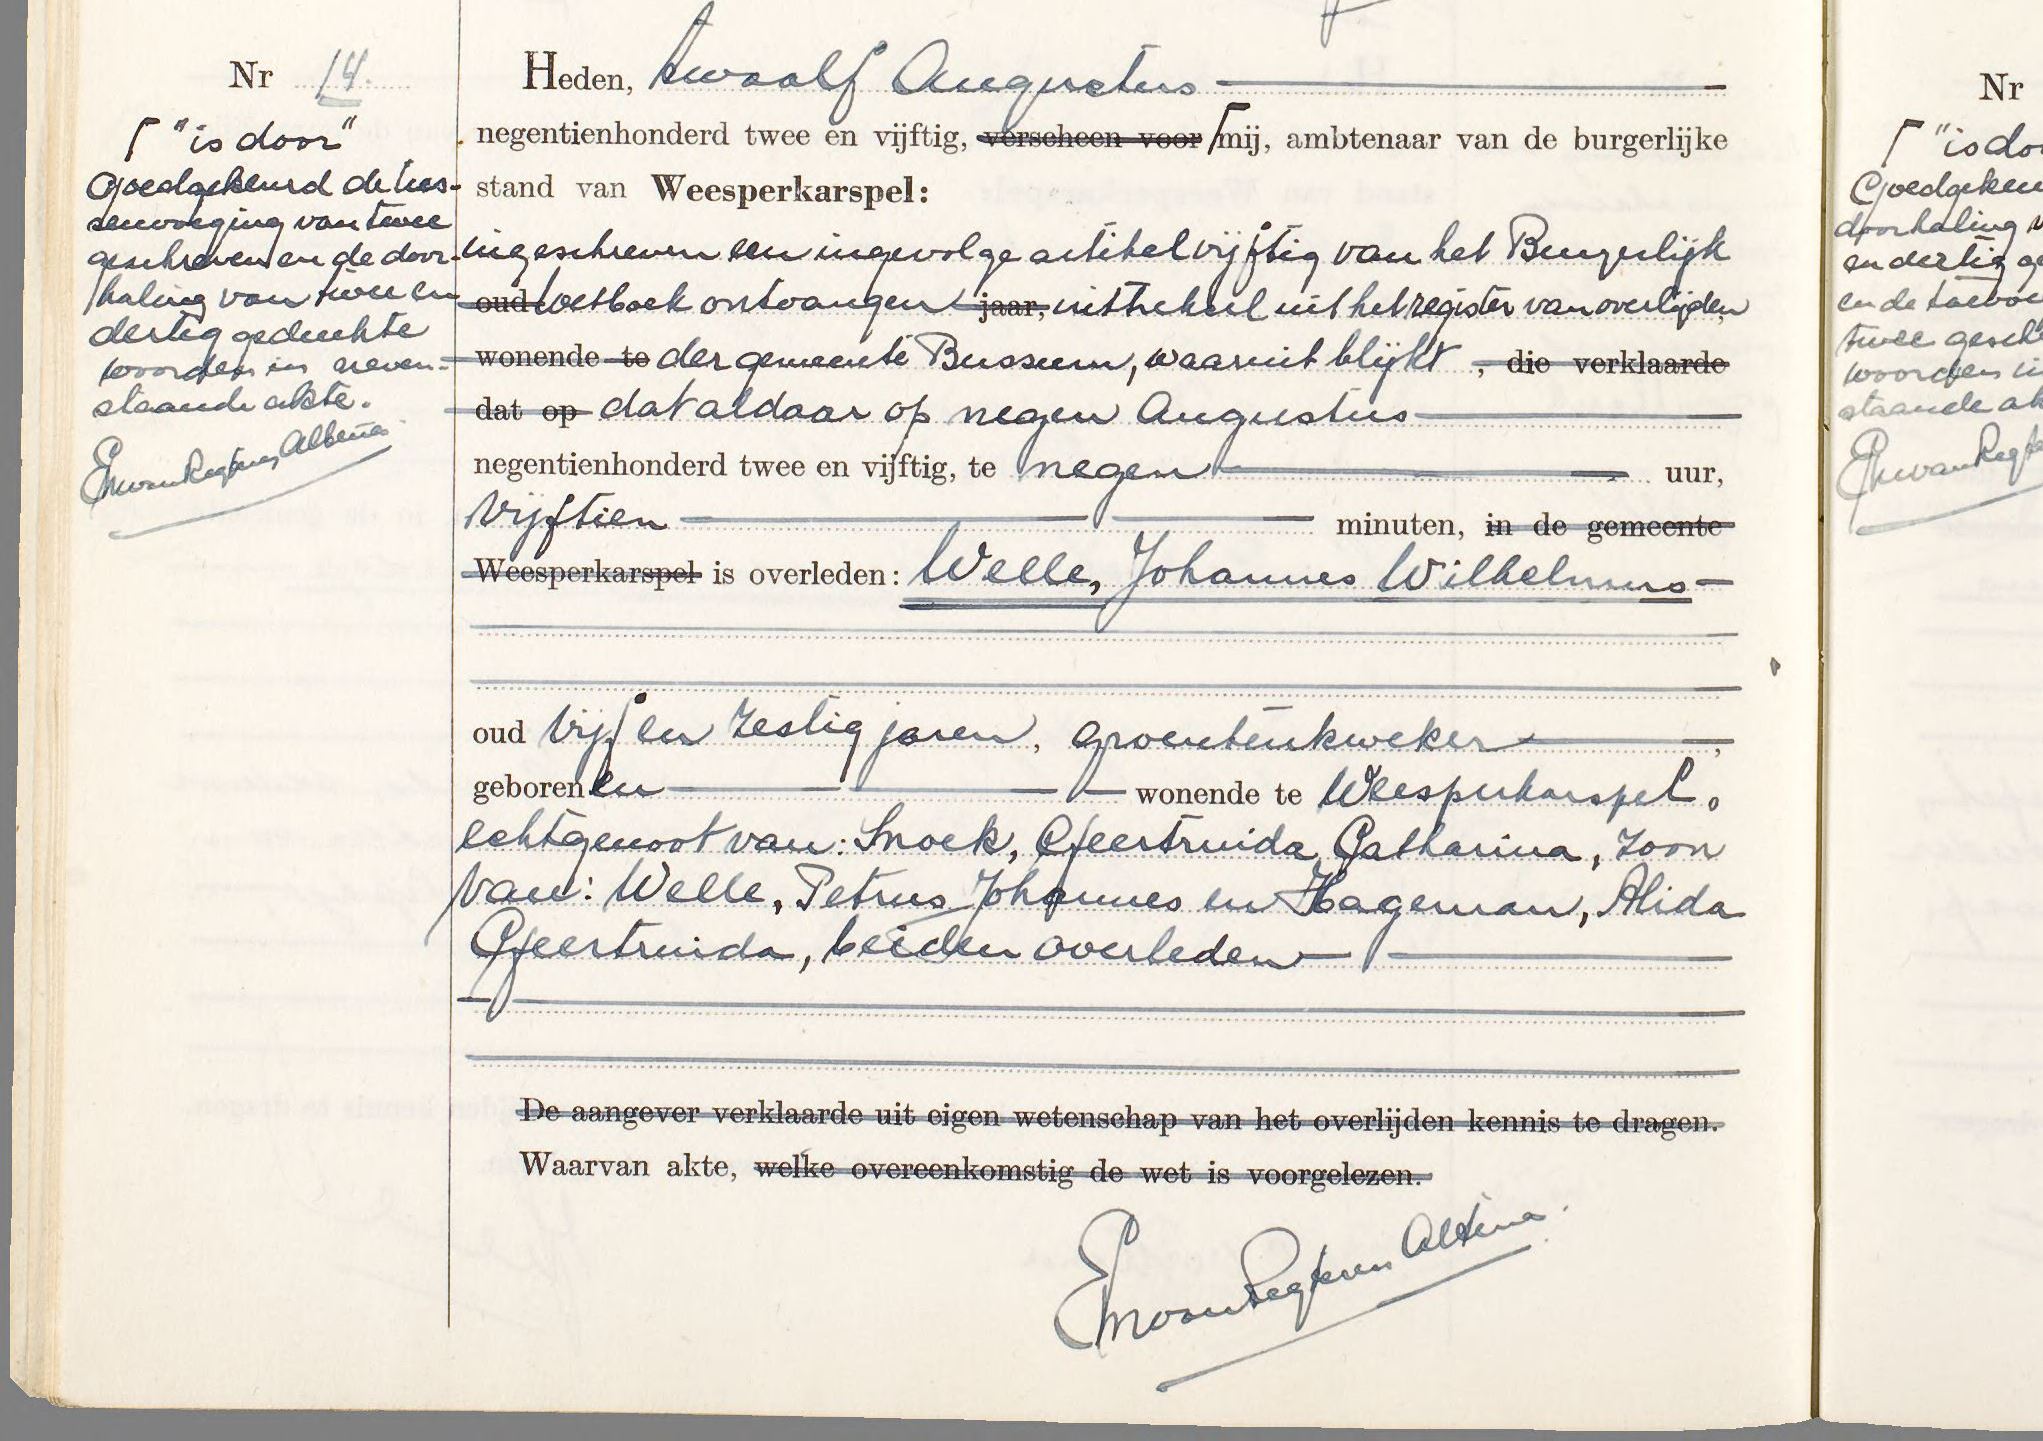 Nr 14.
"is door"
Goedgekeurd de tus-
senvoeging van twee
geschreven en de door-
haling van twee en
dertig gedrukte
woorden in neven-
staande akte.
van Regteren Altena
Heden, twaalf Augustus
negentienhonderd twee en vijftig, verscheen voor mij, ambtenaar van de burgerlijke
stand van Weesperkarspel:
ingeschreven een ingevolge artikel vijftig van het Burgerlijk
oud Wetboek ontvangen jaar, uittreksel uit het register van overlijden
wonende te der gemeente Bussum, waaruit blijkt , die verklaarde
dat op dat aldaar op negen Augustus
negentienhonderd twee en vijftig, te negen uur,
vijftien minuten, in de gemeente
Weesperkarspel is overleden: Welle, Johannes Wilhelmus
oud vijf en zestig jaren, groentenkweker ,
geboren en wonende te Weesperkarspel,
echtgenoot van: Snoek, Geertruida Catharina, zoon
van: Welle, Petrus Johannes en Hageman, Alida
Geertruida, beiden overleden
De aangever verklaarde uit eigen wetenschap van het overlijden kennis te dragen.
Waarvan akte, welke overeenkomstig de wet is voorgelezen.
van Regteren Altena
Nr
"is do
Goedgekeu
doorhaling
en dertig ge
en de toevoe
twee gesch
woorden in
staande ak
van Regte